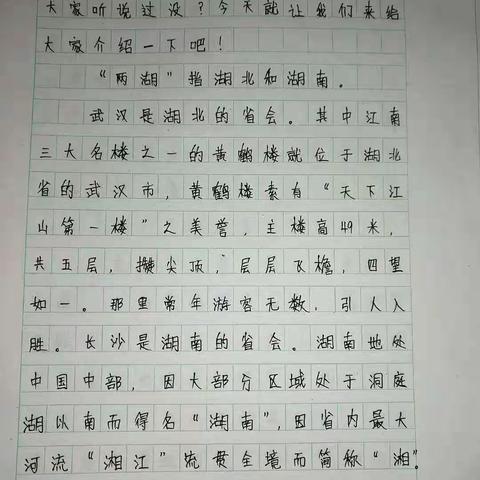 大家听说过没？今天就让我们来给
大家介绍一下吧！
“两湖”指湖北和湖南。
武汉是湖北的省会。其中江南
三大名楼之一的黄鹤楼就位于湖北
省的武汉市，黄鹤楼素有“天下江
山第一楼”之美誉，主楼高49米，
共五层，攒尖顶，层层飞檐，四望
如一。那里常年游客无数，引人入
胜。长沙是湖南的省会。湖南地处
中国中部，因大部分区域处于洞庭
湖以南而得名“湖南”，因省内最大
河流“湘江”流贯全境而简称“湘”。